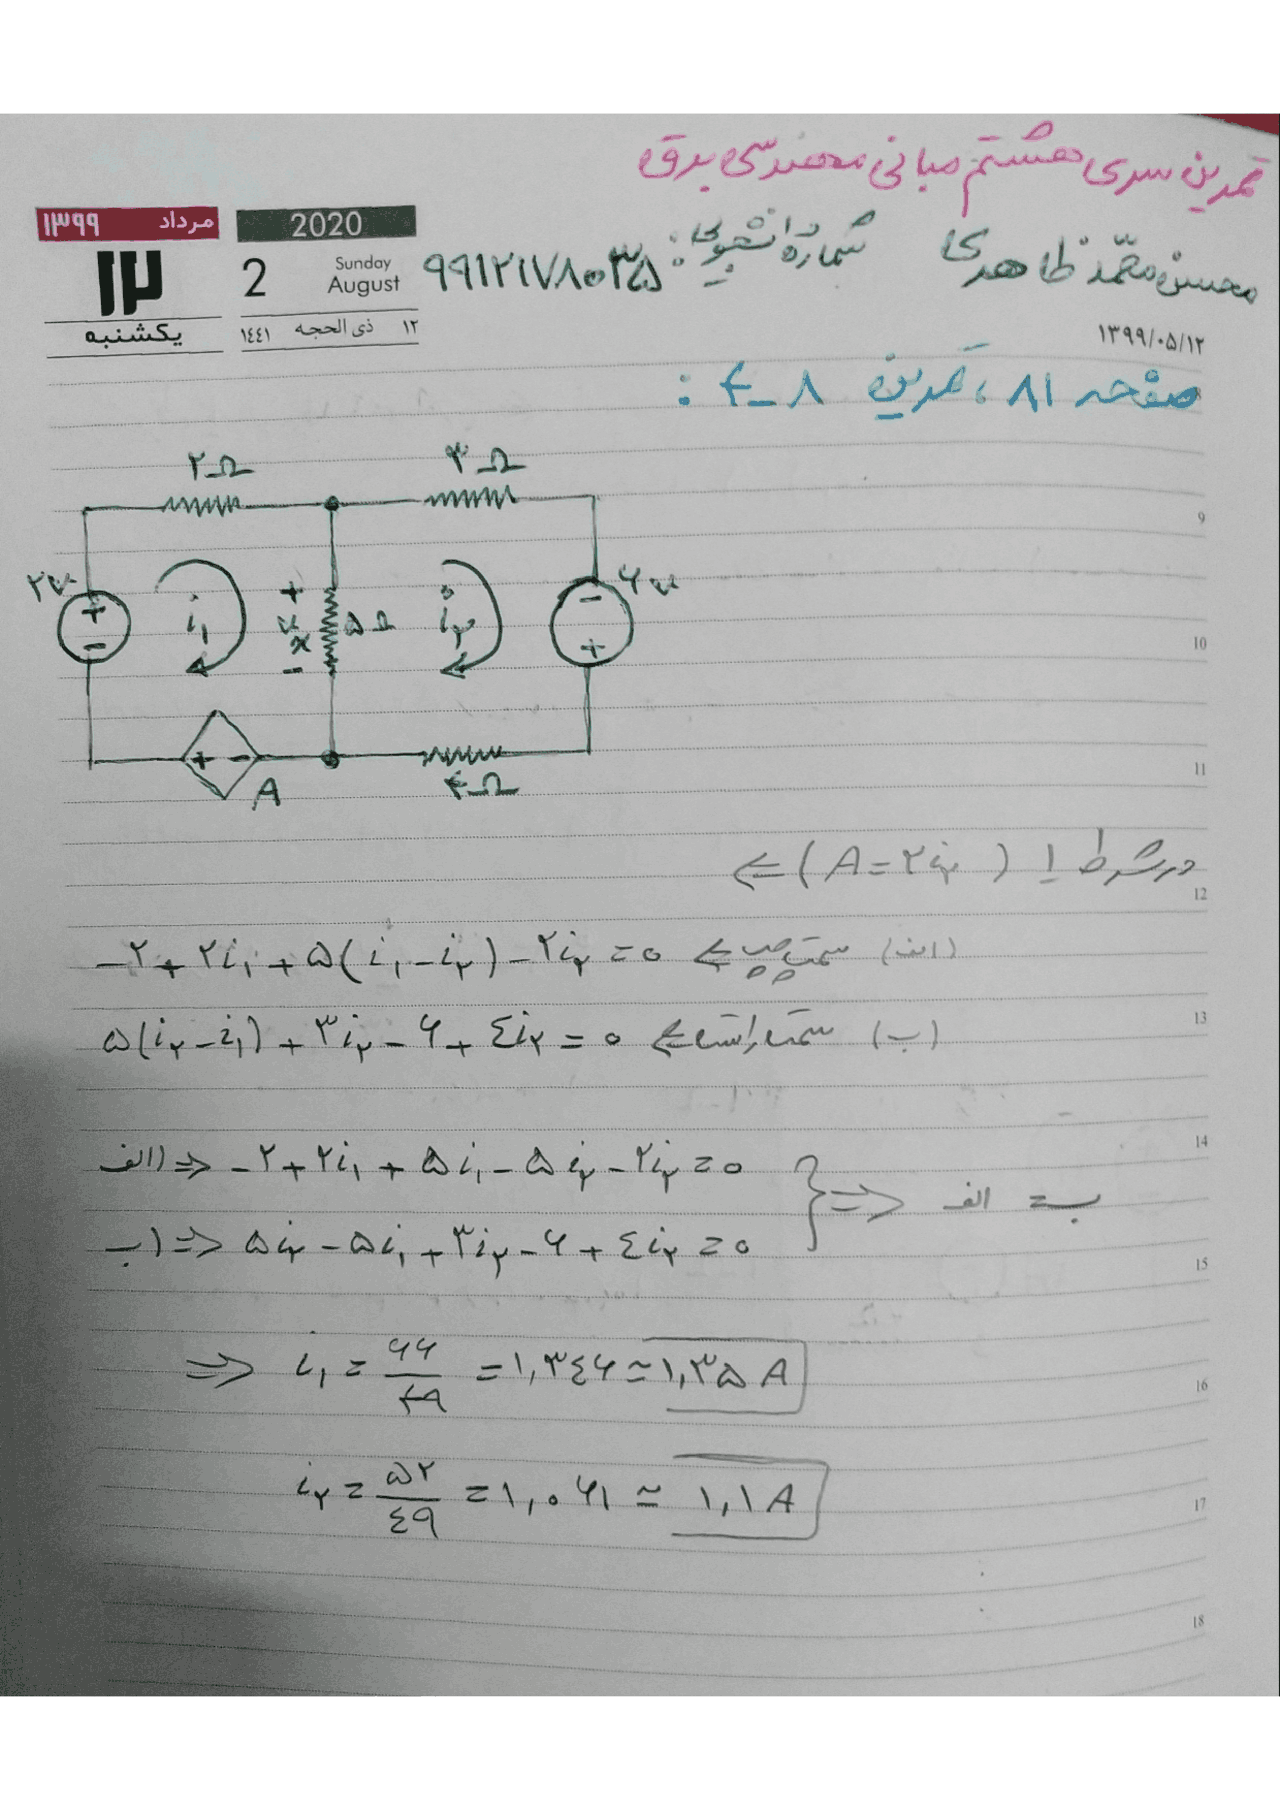 تمرین سری هشتم مبانی مهندسی برق
مرداد ۱۳۹۹
2020
۱۲
2 Sunday August
یکشنبه
۱۲ ذی الحجه ۱٤٤۱
محسن محمّد طاهری شماره دانشجویی: ۹۹۱۲۱۷۸۰۳۵
۱۳۹۹/۰۵/۱۲
صفحه ۸۱ ، تمرین ۸-۴ :
۲Ω ۳Ω
9
۲v + - i₁ + vx - ۵Ω i₂ - + ۶v
10
+ - A ۴Ω
11
در شرط ! (A=۲i₂) ⇐
12
الف) سمت چپ ⇐ -۲+۲i₁+۵(i₁-i₂)-۲i₂=۰
ب) سمت راست ⇐ ۵(i₂-i₁)+۳i₂-۶+٤i₂=۰
13
14
الف) ⇒ -۲+۲i₁+۵i₁-۵i₂-۲i₂=۰
ب، الف ⇒ }
ب) ⇒ ۵i₂-۵i₁+۳i₂-۶+٤i₂=۰
15
⇒ i₁=۶۶/۴۹=۱,۳٤۶≃۱,۳۵ A
16
i₂=۵۲/٤۹=۱,۰۶۱≃۱,۱ A
17
18